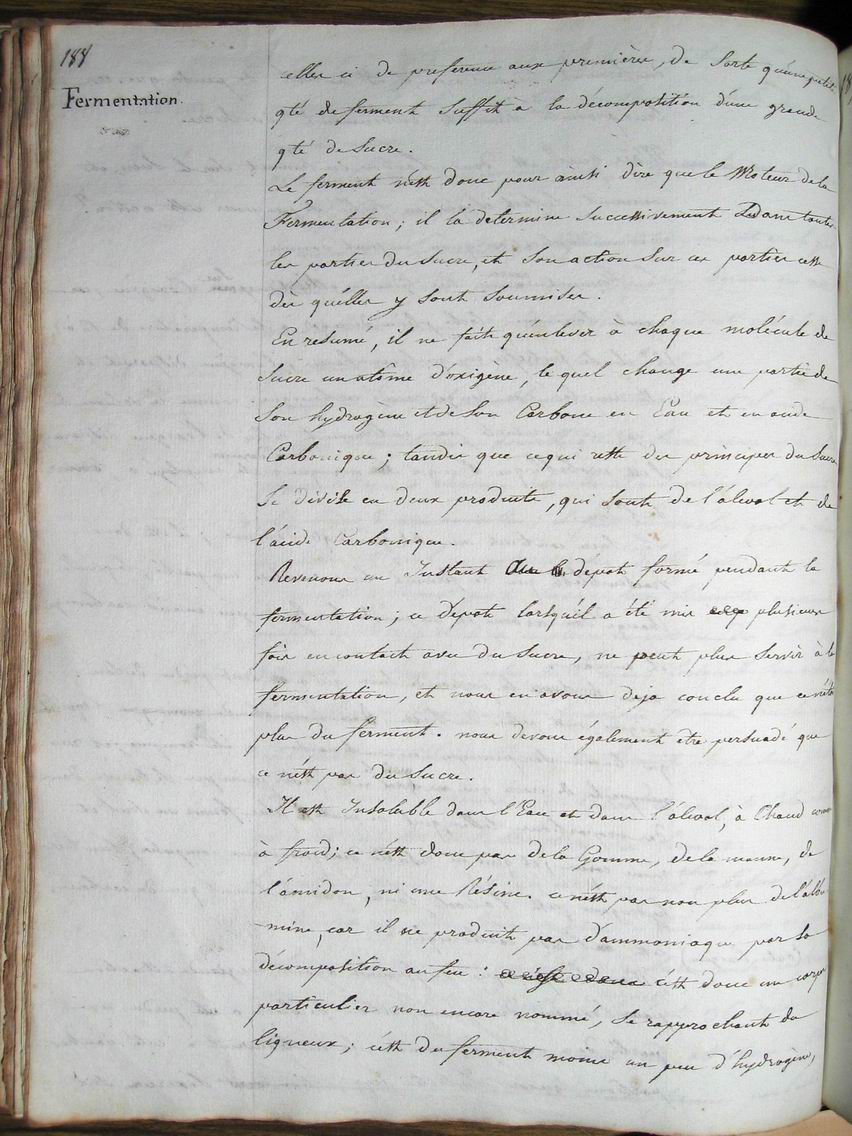 188
Fermentation.
celles ci de preference aux premières, de sorte qu'une petite
qté de ferment suffit a la décomposition d'une grande
qté de Sucre.
Le ferment n'est donc pour ainsi dire que le Moteur de la
Fermentation ; il la determine successivement dans toutes
les parties du sucre, et son action sur ces parties cesse
dès qu'elles y sont soumises.
En resumé, il ne fait qu'enlever à chaque molécule de
Sucre un atôme d'oxigène, le quel change une partie de
Son hydrogène et de Son Carbone en Eau et en acide
Carbonique ; tandis que ce qui reste des principes du Sucre
Se divise en deux produits, qui sont de l'álcool et de
l'acide Carbonique.
Revenons un Instant au dépot formé pendant la
fermentation ; ce dépot lorsqu'il a été mis plusieurs
fois en contact avec du Sucre, ne peut plus servir à la
fermentation, et nous en avons deja conclu que ce n'étt
plus du ferment. nous devons également être persuadé que
ce n'est pas du Sucre.
Il est Insoluble dans l'Eau et dans l'álcool, à Chaud comme
à froid ; ce n'est donc pas de la Gomme, de la manne, de
l'ámidon, ni une Résine. ce n'est pas non plus de l'álbu-
mine, car il ne produit pas d'ammoniaque par sa
décomposition au feu : c'est donc un corps
particulier non encore nommé, se rapprochant du
ligneux ; c'est du ferment moins un peu d'hydrogène,